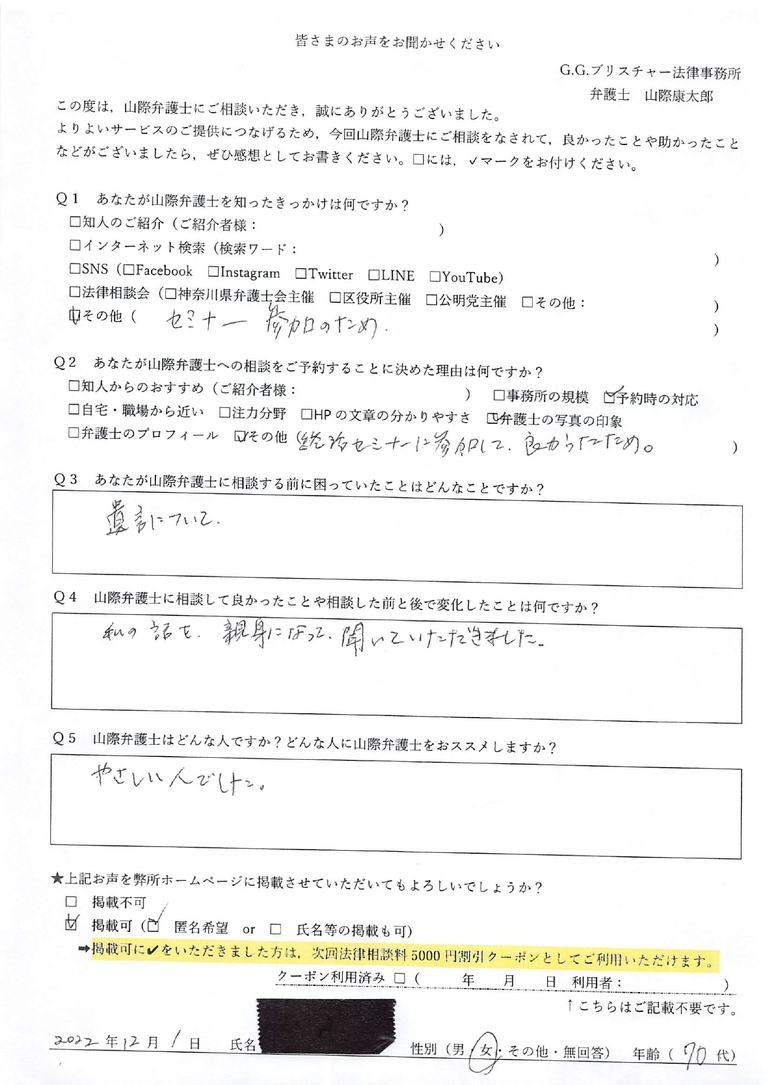 皆さまのお声をお聞かせください
G.G.ブリスチャー法律事務所
弁護士　山際康太郎
この度は，山際弁護士にご相談いただき，誠にありがとうございました。
よりよいサービスのご提供につなげるため，今回山際弁護士にご相談をなされて，良かったことや助かったこと
などがございましたら，ぜひ感想としてお書きください。□には，✓マークをお付けください。
Ｑ１　あなたが山際弁護士を知ったきっかけは何ですか？
□知人のご紹介（ご紹介者様：　　　　　　　　　　）
□インターネット検索（検索ワード：　　　　　　　　　　）
□SNS（□Facebook　□Instagram　□Twitter　□LINE　□YouTube）
□法律相談会（□神奈川県弁護士会主催　□区役所主催　□公明党主催　□その他：　　　　　）
☑その他（　セミナー参加のため．　　　　　）
Ｑ２　あなたが山際弁護士への相談をご予約することに決めた理由は何ですか？
□知人からのおすすめ（ご紹介者様：　　　　　　　　　　）　□事務所の規模　☑予約時の対応
□自宅・職場から近い　□注力分野　□HPの文章の分かりやすさ　☑弁護士の写真の印象
□弁護士のプロフィール　☑その他（終活セミナーに参加して、良かったため。　　　）
Ｑ３　あなたが山際弁護士に相談する前に困っていたことはどんなことですか？
遺言について．
Ｑ４　山際弁護士に相談して良かったことや相談した前と後で変化したことは何ですか？
私の話を、親身になって、聞いていただきました。
Ｑ５　山際弁護士はどんな人ですか？どんな人に山際弁護士をおススメしますか？
やさしい人でした。
★上記お声を弊所ホームページに掲載させていただいてもよろしいでしょうか？
□　掲載不可
☑　掲載可（☑　匿名希望　or　□　氏名等の掲載も可）
➡掲載可に✔をいただきました方は，次回法律相談料5000円割引クーポンとしてご利用いただけます。
クーポン利用済み　□（　　年　　月　　日　利用者：　　　　　　）
↑こちらはご記載不要です。
2022年12月1日　氏名　　　　　　性別（男・女・その他・無回答）　年齢（70代）